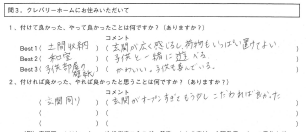 問3．クレバリーホームにお住みいただいて
1．付けて良かった、やって良かったことは何ですか？（ありますか？）
コメント
Best1（ 土間収納 ）（ 玄関が広く感じるし、荷物もいっぱい置けてよい ）
Best2（ 和室 ）（ 子供と一緒に遊べる ）
Best3（ 子供部屋の ）（ かわいい。子供も喜んでいる。 ）
2．付ければ良かった、やれば良かったと思うことは何ですか？（ありますか？）
コメント
（ 玄関周り ）（ 玄関がオープンすぎてもう少しこだわれば良かった ）
（ ）（ ）